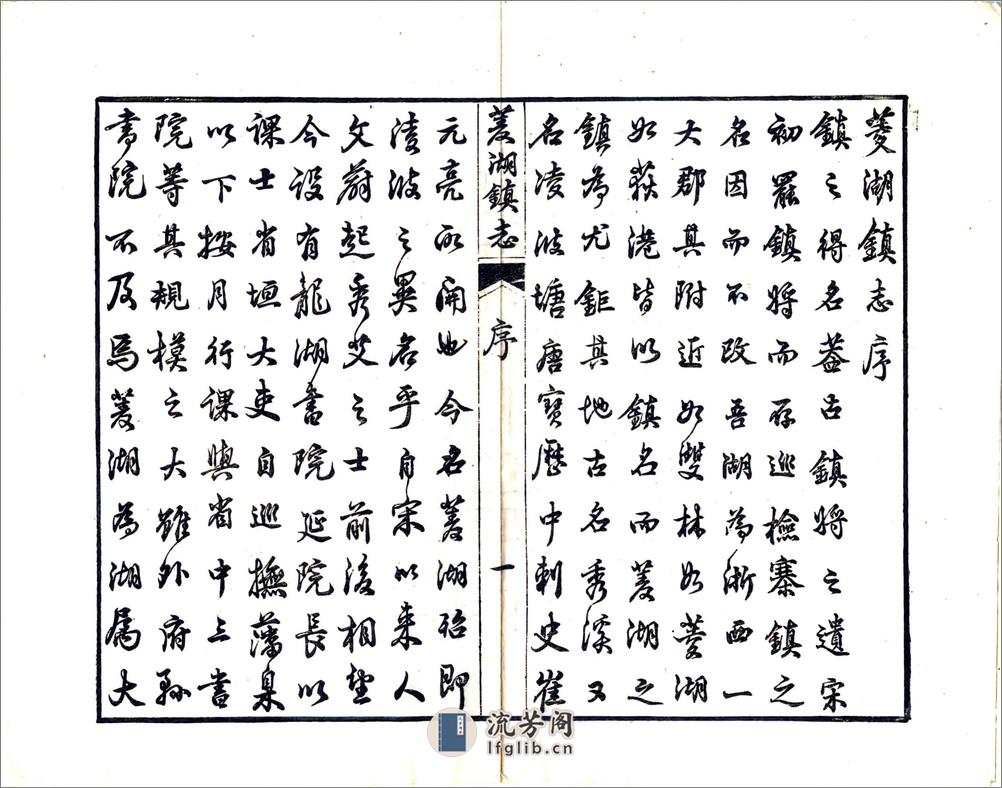 菱湖鎮志序
鎮之得名蓋古鎮將之遺宋
初罷鎮將而存巡檢寨鎮之
名因而不改吾湖為浙西一
大郡其附近如雙林如菱湖
如荻港皆以鎮名而菱湖之
鎮為尤鉅其地古名秀溪又
名凌波塘唐寶歷中刺史崔
菱湖鎮志 序 一
元亮所開也今名菱湖殆即
淩波之異名乎自宋以來人
文蔚起秀艾之士前後相望
今設有龍湖書院延院長以
課士省垣大吏自巡撫藩臬
以下按月行課與省中三書
院等其規模之大雖外府縣
書院不及焉菱湖為湖屬大
流芳阁
lfglib.cn